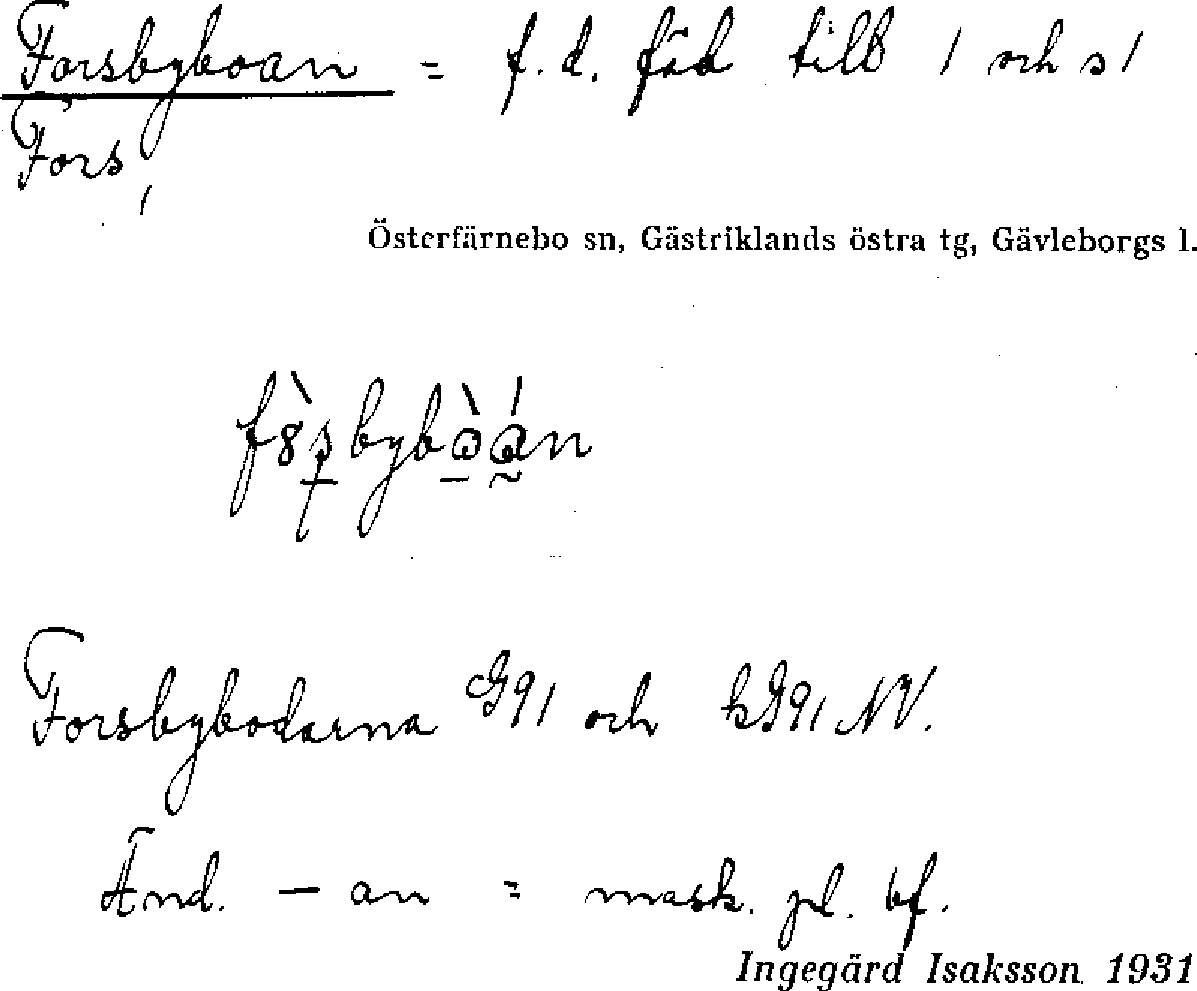 Forsbyboan = f. d. fäb till 1 och s1
Fors
Österfärnebo sn, Gästriklands östra tg, Gävleborgs l.
Forsbybodarna G91 och kG91 NV.
Änd. – an = mask. pl. bf.
Ingegärd Isaksson 1931